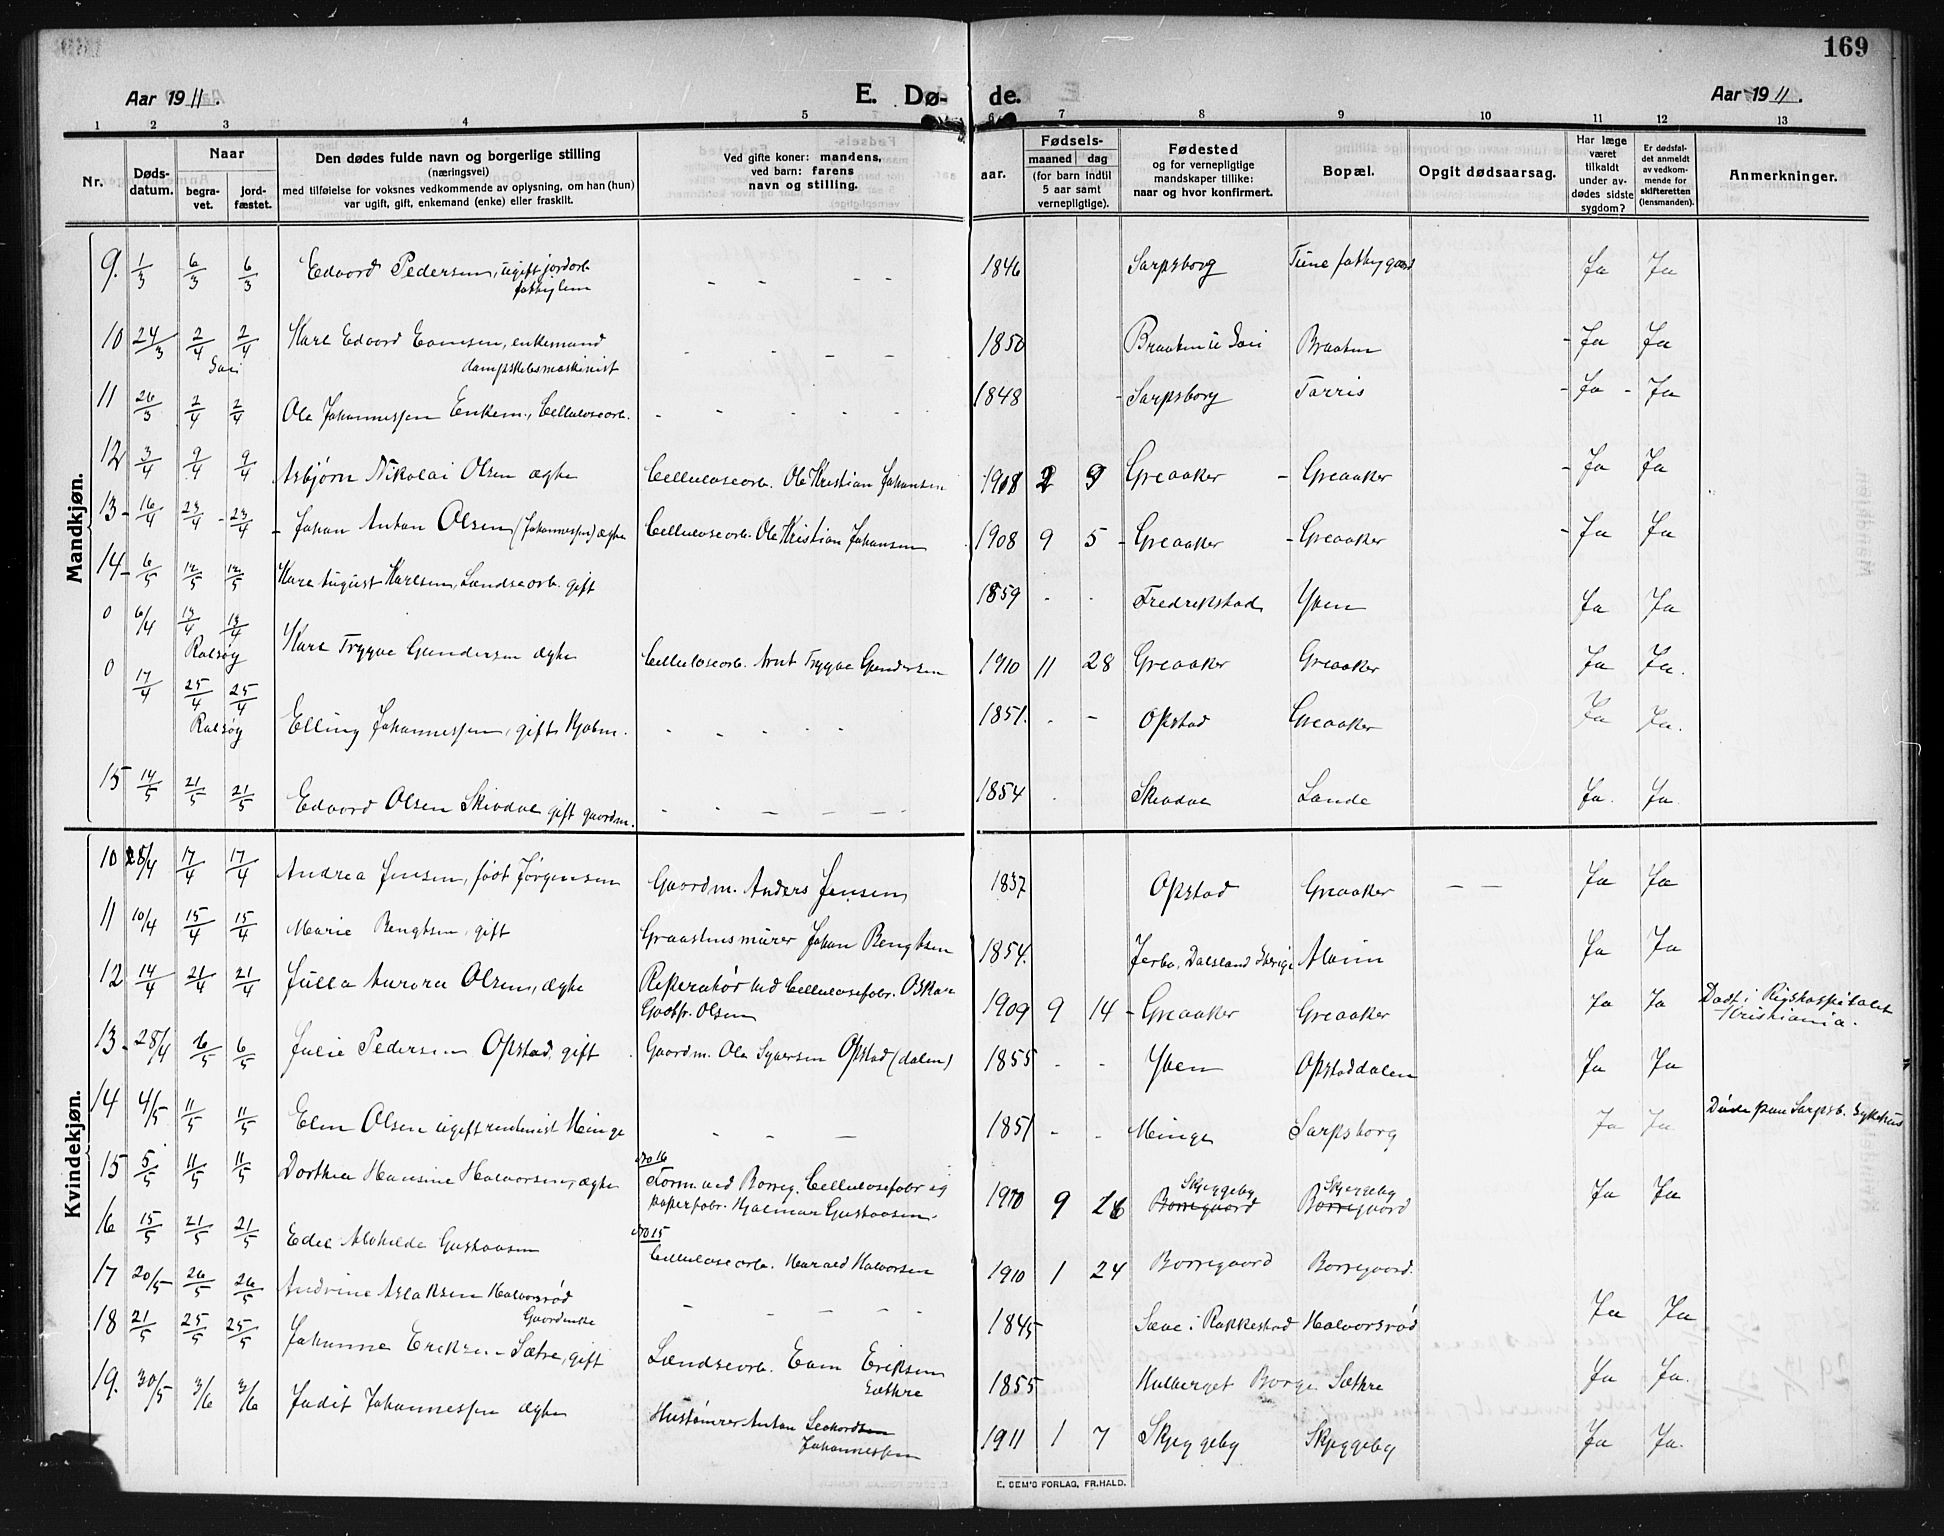 169
Aar 1911.
E. Dø- de.
Aar 1911.
1 2 3 4 5 6 7 8 9 10 11 12 13
Nr.
Døds-datum.
Naar
begra-vet.
jord-fæstet.
Den dødes fulde navn og borgerlige stilling
(næringsvei)
med tilføielse for voksnes vedkommende av oplysning, om han (hun)
var ugift, gift, enkemand (enke) eller fraskilt.
Ved gifte koner: mandens,
ved barn: farens
navn og stilling.
aar.
Fødsels-
maaned dag
(for barn indtil
5 aar samt
vernepligtige).
Fødested
og for vernepligtige
mandskaper tillike:
naar og hvor konfirmert.
Bopæl.
Opgit dødsaarsag.
Har læge
været
tilkaldt
under av-
dødes sidste
sygdom?
Er dødsfal-
det anmeldt
av vedkom-
mende for
skifteretten
(lensmanden).
Anmerkninger.
Mandkjøn.
9. 1/3 6/3 6/3 Edvard Pedersen, ugift jordarb. - - - - 1846 Sarpsborg Tune fattiggaard Ja Ja
fattiglem
10 24/3 2/4 2/4 Karl Edvard Evensen, enkemand - - - - 1850 Braaten Braaten Ja Ja
dampskibsmaskinist
11 26/3 2/4 2/4 Ole Johannessen Enkem., Cellulosearb. - - - - 1848 Sarpsborg Torris Ja Ja
12 3/4 9/4 9/4 Asbjørn Nikolai Olsen ægte Cellulosearb. Ole Kristian Johansen 1908 2 9 Greaaker Greaaker Ja Ja
13 16/4 23/4 23/4 Johan Anton Olsen (Johannessen) ægte Cellulosearb. Ole Kristian Johansen 1908 9 5 Greaaker Greaaker Ja Ja
14 6/5 12/5 12/5 Karl August Karlsen, Lændsearb. gift 1859 - - Fredrikstad Yven Ja Ja
0 6/4 13/4 13/4 Karl Trygve Gundersen ægte Cellulosearb. Arnt Trygve Gundersen 1910 11 28 Greaaker Greaaker Ja Ja.
Rolsøy
0 17/4 25/4 25/4 Elling Johannessen, gift - - - - 1851. - - Opstad Greaaker Ja Ja.
Rolsøy
15 14/5 21/5 21/5 Edvard Olsen Skivdal gift gaardm. - - - - 1854 Skivdal Lande Ja. Ja.
Kvindekjøn.
10 17/4 17/4 Andrea Jensen, født Jørgensen Gaardm. Anders Jensen 1837 Opstad Greaaker - - Ja Ja
11 10/4 15/4 15/4 Marie Bengtsen, gift Graastensmurer Johan Bengtsen 1854. Dalsland Sverige Alvim Ja Ja
12 14/4 21/4 21/4 Julla Aurora Olsen, ægte Reperatør ved Cellulosefabr. Oskar 1909 9 14 Greaaker Greaaker Ja Ja Død i Rigshospitalet
Gotfr. Olsen Kristiania.
13 28/4 6/5 6/5 Julie Pedersen Opstad, gift Gaardm. Ole Syversen Opstad (dalen) 1855 - - Yven Opstaddalen Ja Ja
14 4/5 11/5 11/5 Olsen ugift rentenist Minge - - - 1851 - - Minge Sarpsborg Ja Ja Døde paa Sarpsb. Sykehus
15 5/5 11/5 11/5 Dorthea Hansine Halvorsen, ægte No 16
Form. ved Borreg. Cellulosefabr. og 1910 9 26 Skjeggeby Borregaard Skjeggeby Borregaard Ja Ja
papirfabr. Hjalmar Gustavsen.
16 15/5 21/5 21/5 Edel Alvhilde Gustavsen No 15
Cellulosearb. Harald Halvorsen 1910 1 24 Borregaard Borregaard.
17 20/5 26/5 26/5 Andrine Aslaksen Halvorsrød - - - - 1845 i Rakkestad Halvorsrød Ja Ja
Gaardenke
18 21/5 25/5 25/5 Johanne Eriksen Sætre, gift Lændsearb. Even Eriksen 1855 Borge Sæthre Ja Ja.
Sæthre
19. 30/5 3/6 3/6 Judit Johannessen ægte Hustømrer Anton 1911 1 7 Skjeggeby Skjeggeby Ja Ja.
Johannessen
E. SEM'S FORLAG, FR.HALD.